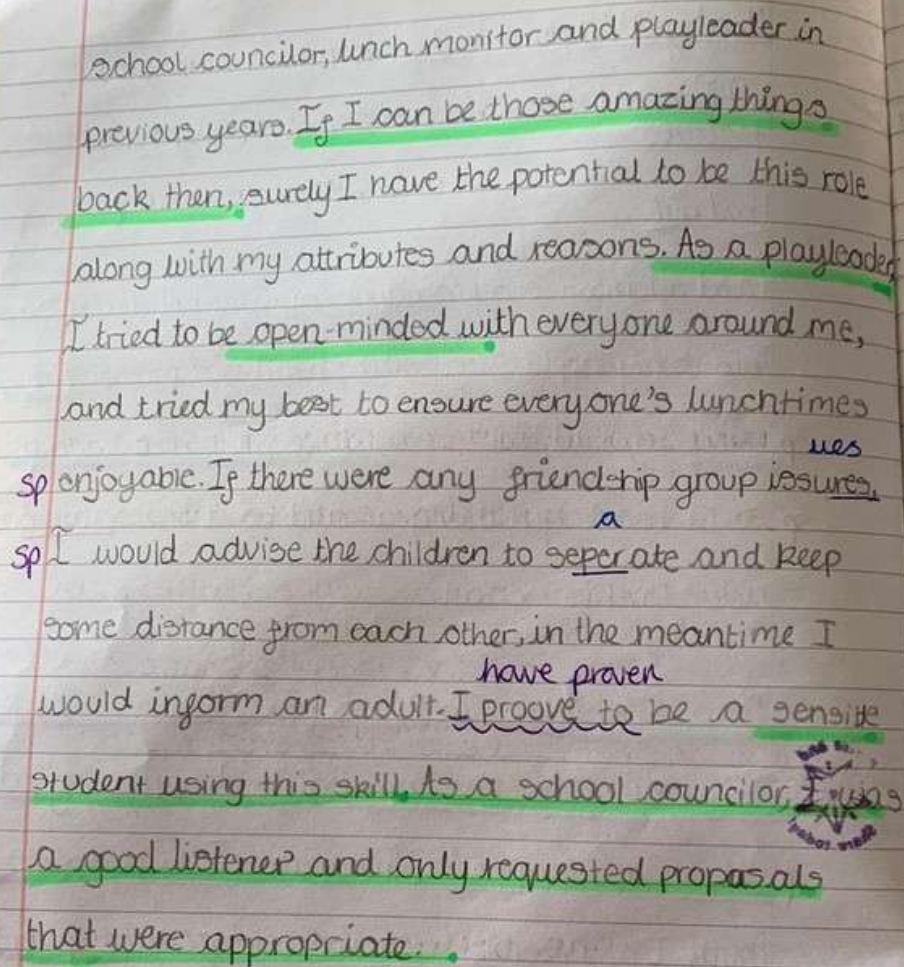 school councilor, lunch monitor and playleader in
previous years. If I can be those amazing things
back then, surely I have the potential to be this role
along with my attributes and reasons. As a playleader
I tried to be open-minded with everyone around me,
and tried my best to ensure everyone's lunchtimes
ues
sp enjoyable. If there were any friendship group issures,
a
sp I would advise the children to seperate and keep
some distance from each other, in the meantime I
have proven
would inform an adult. I proove to be a sensible
student using this skill. As a school councilor, I was
a good listener and only requested propasals
that were appropriate.